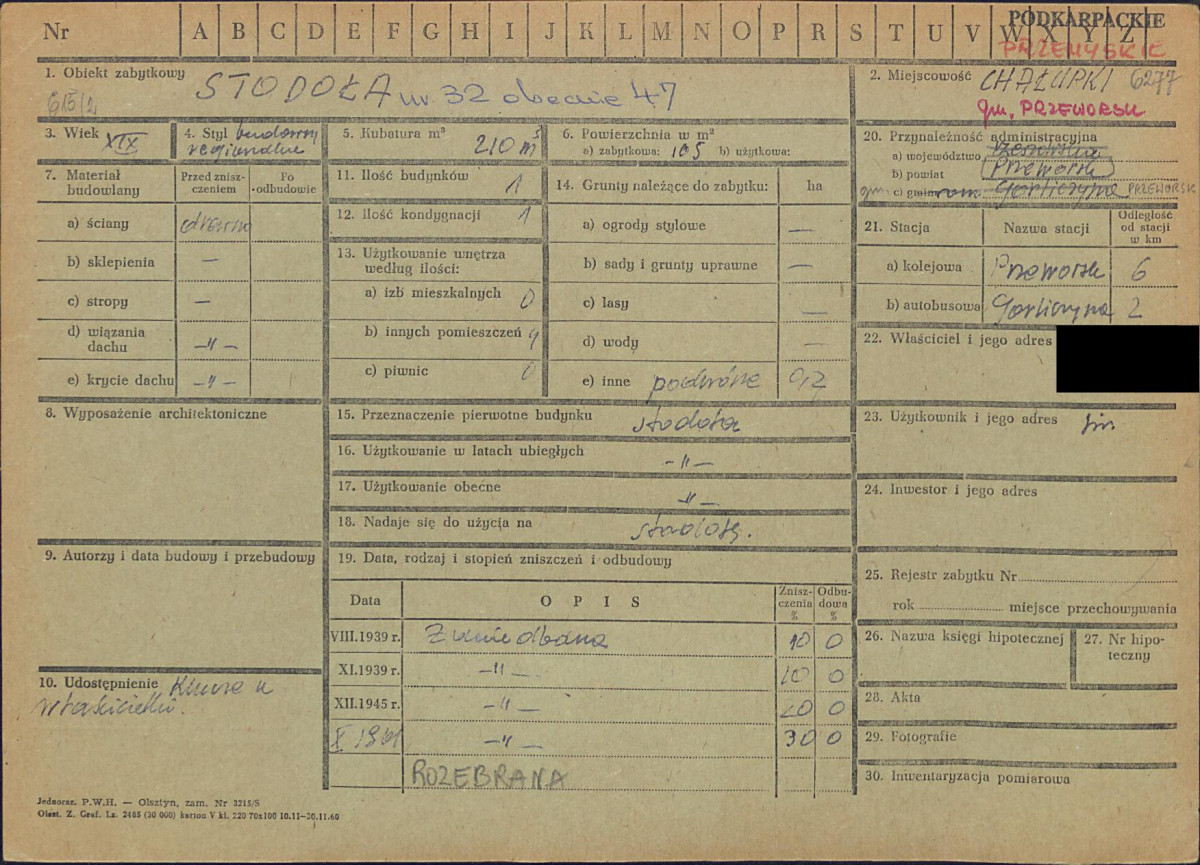 Nr A B C D E F G H I J K L M N O P R S T U V W X Y Z
PODKARPACKIE
PRZEMYSKIE
1. Obiekt zabytkowy STODOŁA nr. 32 obecnie 47
615/2
2. Miejscowość CHAŁUPKI 6277
gm. PRZEWORSK
3. Wiek XIX
4. Styl budowny regionalne
5. Kubatura m³ 210 m³
6. Powierzchnia w m²
a) zabytkowa: 105 b) użytkowa:
7. Materiał budowlany
Przed zniszczeniem
Po odbudowie
a) ściany drewno
b) sklepienia —
c) stropy —
d) wiązania dachu —"—
e) krycie dachu —"—
8. Wyposażenie architektoniczne
9. Autorzy i data budowy i przebudowy
10. Udostępnienie Klucze u
właściciela.
11. Ilość budynków 1
12. Ilość kondygnacji 1
13. Użytkowanie wnętrza według ilości:
a) izb mieszkalnych 0
b) innych pomieszczeń
c) piwnic 0
14. Grunty należące do zabytku: ha
a) ogrody stylowe —
b) sady i grunty uprawne —
c) lasy —
d) wody —
e) inne podwórze 0,2
15. Przeznaczenie pierwotne budynku stodoła
16. Użytkowanie w latach ubiegłych —"—
17. Użytkowanie obecne —"—
18. Nadaje się do użycia na stodołę.
19. Data, rodzaj i stopień zniszczeń i odbudowy
Data OPIS Zniszczenia % Odbudowa %
VIII.1939 r. Zaniedbana 10 0
XI.1939 r. —"— 10 0
XII.1945 r. —"— 20 0
X 1961 —"— 30 0
ROZEBRANA
20. Przynależność administracyjna
a) województwo rzeszowskie
b) powiat Przeworsk
gm. c) gmina rom. Gorliczyna PRZEWORSK
21. Stacja Nazwa stacji Odległość od stacji w km
a) kolejowa Przeworsk 6
b) autobusowa Gorliczyna 2
22. Właściciel i jego adres
23. Użytkownik i jego adres
24. Inwestor i jego adres
25. Rejestr zabytku Nr
rok miejsce przechowywania
26. Nazwa księgi hipotecznej
27. Nr hipoteczny
28. Akta
29. Fotografie
30. Inwentaryzacja pomiarowa
Jednoraz. P.W.H. — Olsztyn, zam. Nr 3215/S
Olszt. Z. Graf. Lz. 2485 (30 000) karton V kl. 220 70x100 10.11—30.11.60